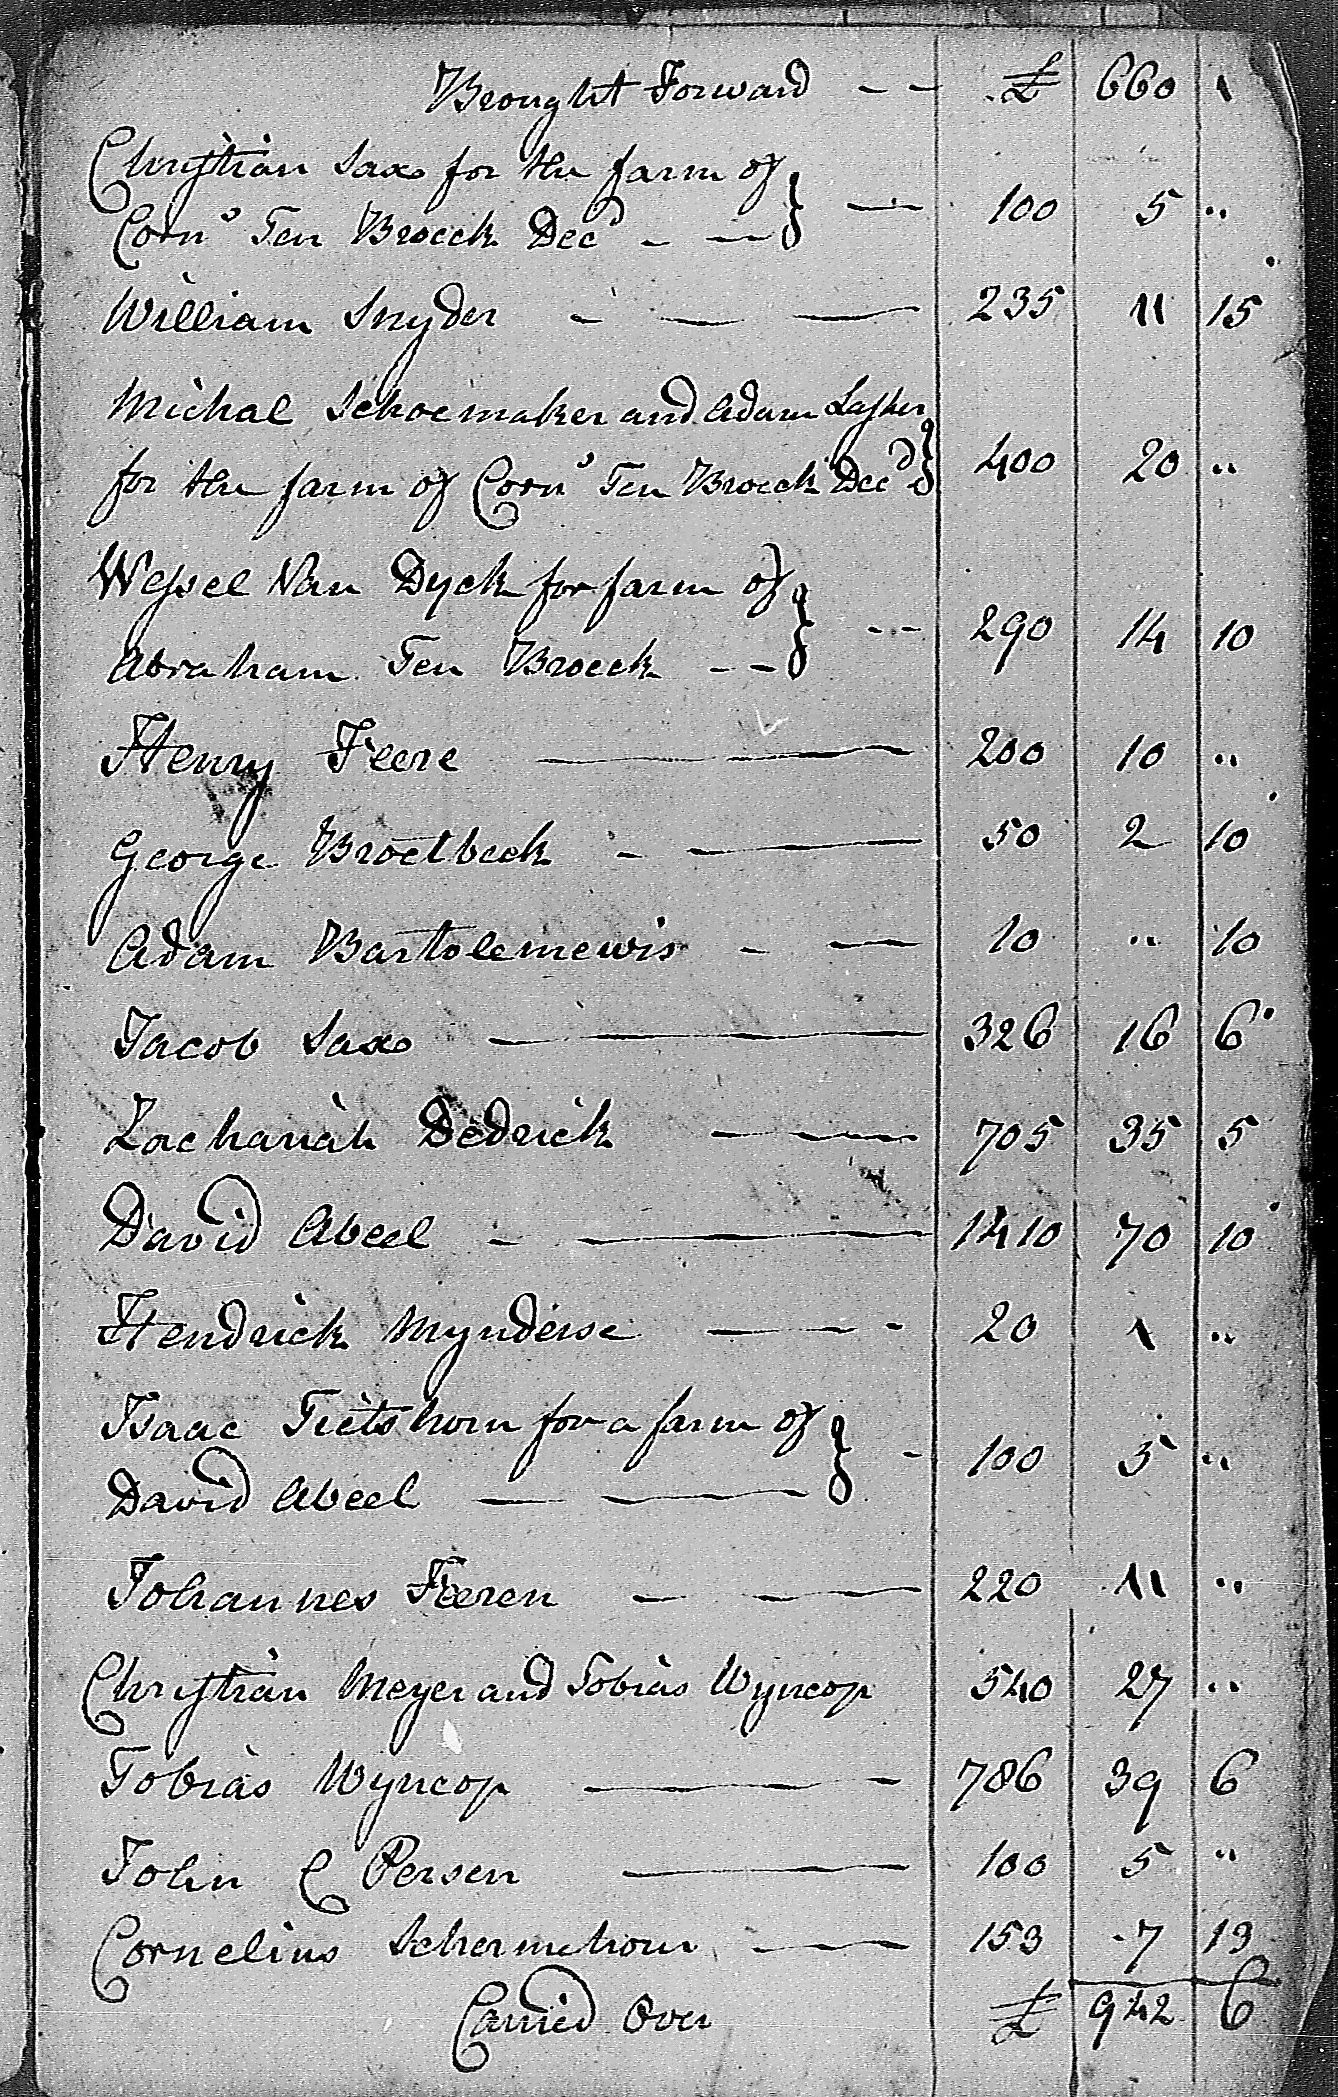 Brought Forward -- £ 660 1
Christian Sax for the farm of
Corn.s Ten Broeck Decd - — } — 100 5 "
William Snyder - — — 235 11 15
Michal Schoemaker and Adam Lasher
for the farm of Corn.s Ten Broeck Decd } 400 20 "
Wessel Van Dyck for farm of
Abraham Ten Broeck -- } -- 290 14 10
Henry Feere — — 200 10 "
George Broetbeck - — 50 2 10
Adam Bartolemewis - — 10 " 10
Jacob Sax — — 326 16 6
Zachariah Dedrick — — 705 35 5
David Abeel - — 1410 70 10
Hendrick Mynderse — - - 20 1 "
Isaac Tietshorn for a farm of
David Abeel — — } - 100 5 "
Johannes Feeren — — — 220 11 "
Christian Meyer and Tobias Wyncop 540 27 "
Tobias Wyncop — — 786 39 6
John C Persen — 100 5 "
Cornelius Schermehorn — — 153 7 13
Carried Over £ 942 6